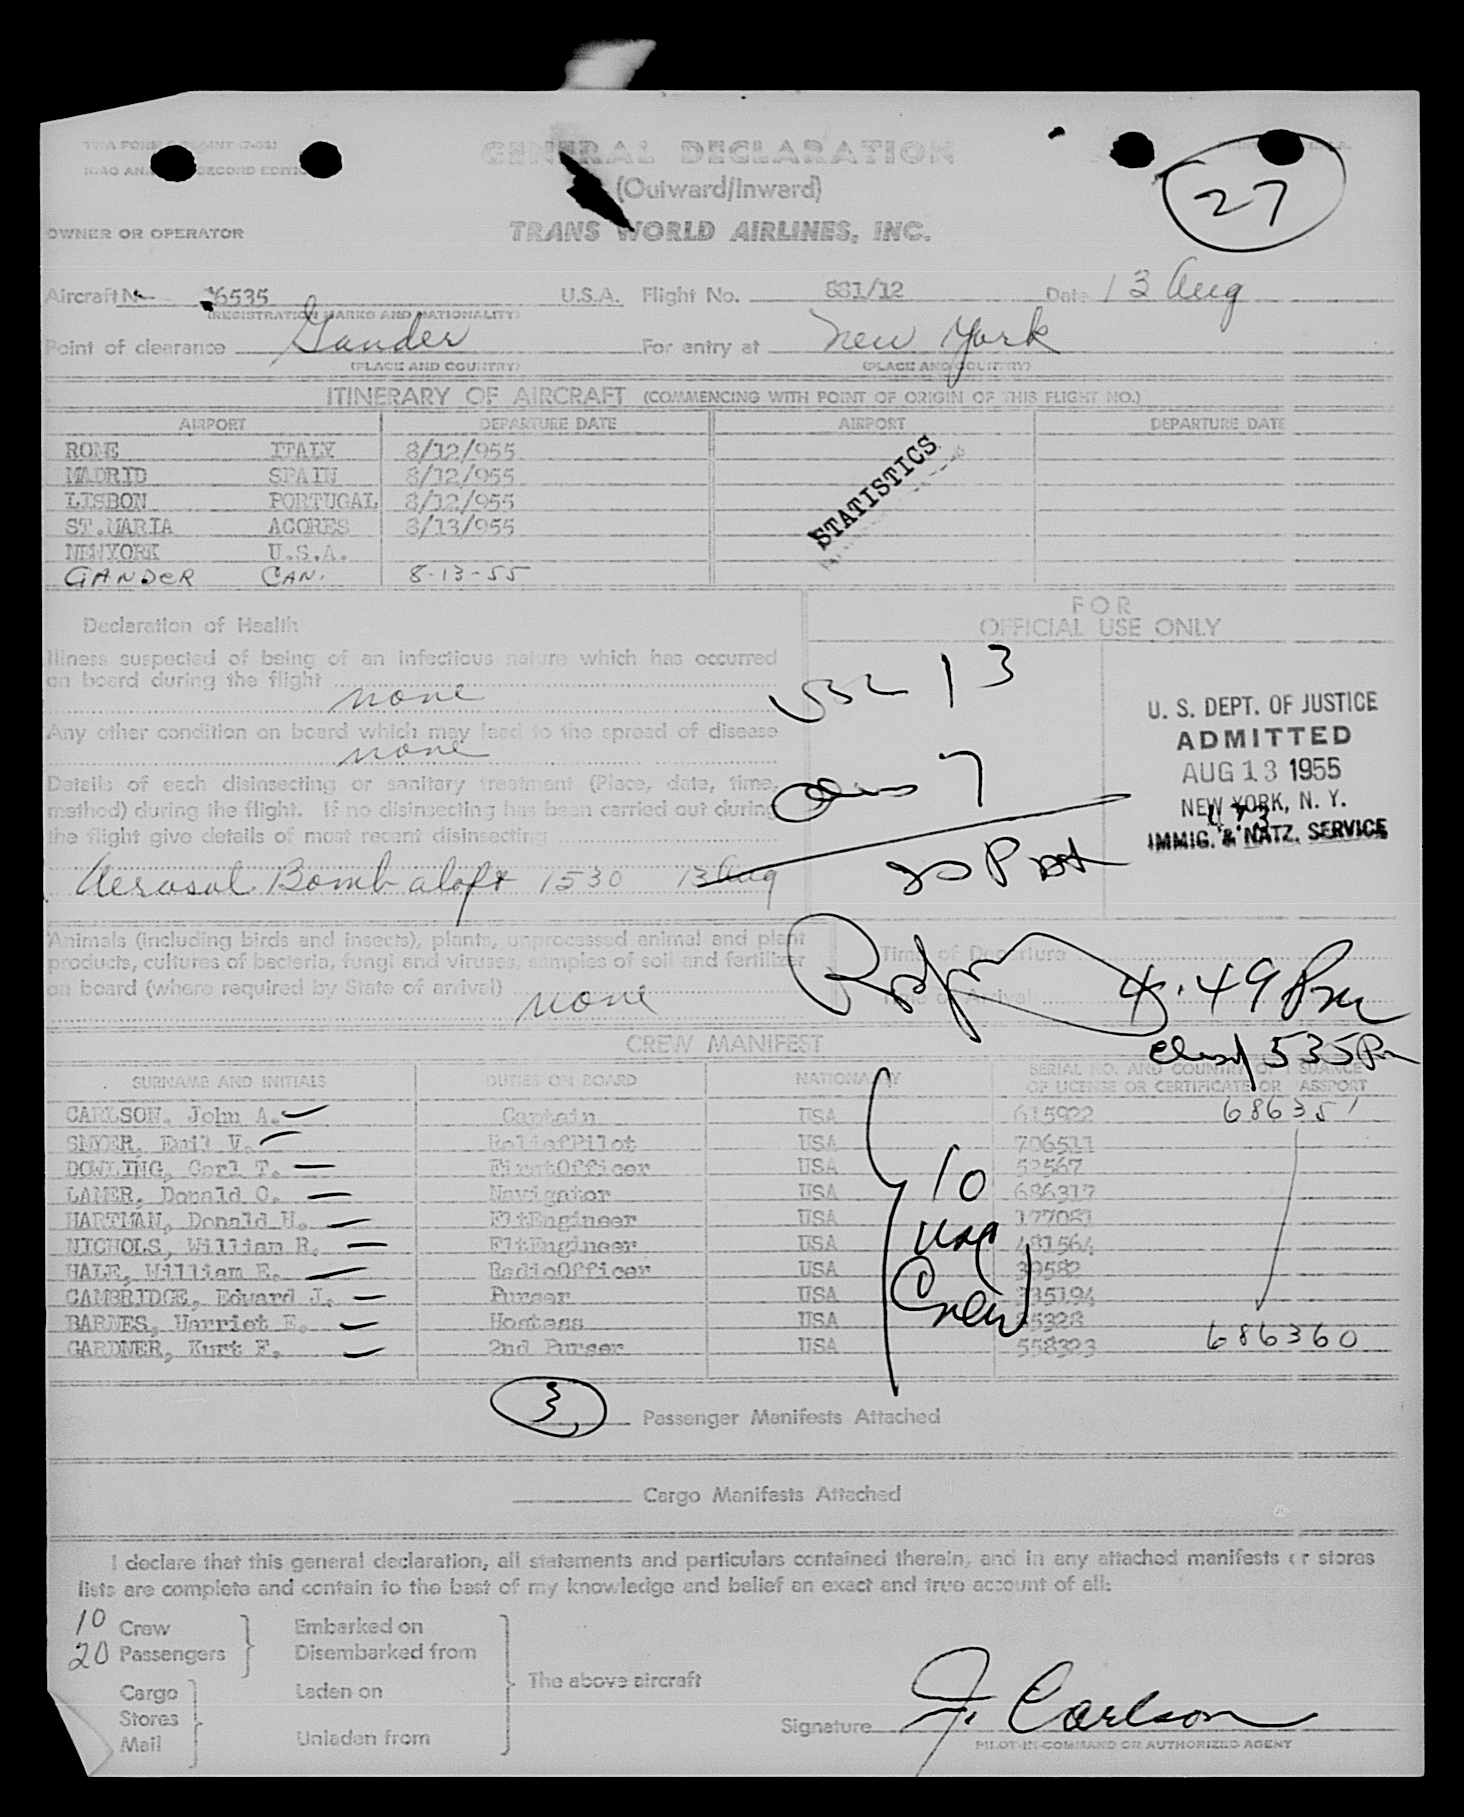 GENERAL DECLARATION
(Outward/Inward)
27
OWNER OR OPERATOR TRANS WORLD AIRLINES, INC.
Aircraft N- 6535 U.S.A. Flight No. 881/12 Date 13 Aug
(REGISTRATION MARKS AND NATIONALITY)
Point of clearance Gander For entry at New York
(PLACE AND COUNTRY) (PLACE AND COUNTRY)
ITINERARY OF AIRCRAFT (COMMENCING WITH POINT OF ORIGIN OF THIS FLIGHT NO.)
AIRPORT DEPARTURE DATE AIRPORT DEPARTURE DATE
ROME ITALY 8/12/955
MADRID SPAIN 8/12/955
LISBON PORTUGAL 8/12/955
ST.MARIA ACORES 8/13/955
NEWYORK U.S.A.
GANDER CAN. 8-13-55
STATISTICS
FOR
OFFICIAL USE ONLY
Declaration of Health
Illness suspected of being of an infectious nature which has occurred
on board during the flight
none
Any other condition on board which may lead to the spread of disease
none
Details of each disinsecting or sanitary treatment (Place, date, time,
method) during the flight. If no disinsecting has been carried out during
the flight give details of most recent disinsecting
Aerosol Bomb aloft 1530 13 Aug
USC 13
7
20 P
U. S. DEPT. OF JUSTICE
ADMITTED
AUG 13 1955
NEW YORK, N. Y.
IMMIG. & NATZ. SERVICE
Animals (including birds and insects), plants, unprocessed animal and plant
products, cultures of bacteria, fungi and viruses, samples of soil and fertilizer
on board (where required by State of arrival) none
Time of Departure
Time of Arrival 4.49 Pm
535 Pm
CREW MANIFEST
SURNAME AND INITIALS DUTIES ON BOARD NATIONALITY SERIAL NO. AND COUNTRY OF ISSUANCE
OF LICENSE OR CERTIFICATE OR PASSPORT
CARLSON, John A. Captain USA 615922 686351
SNYER, Emil V. ReliefPilot USA 706511
DOWLING, Carl T. FirstOfficer USA 52567
LAMER, Donald O. Navigator USA 686317
HARTMAN, Donald H. FltEngineer USA 177081
NICHOLS, William R. FltEngineer USA 481564
HALE, William E. RadioOfficer USA 39582
CAMBRIDGE, Edward J. Purser USA 35194
BARNES, Harriet E. Hostess USA 5328
GARDNER, Kurt F. 2nd Purser USA 558323 686360
10
Crew
3 Passenger Manifests Attached
Cargo Manifests Attached
I declare that this general declaration, all statements and particulars contained therein, and in any attached manifests or stores
lists are complete and contain to the best of my knowledge and belief an exact and true account of all:
10 Crew Embarked on
20 Passengers Disembarked from
The above aircraft
Cargo Laden on
Stores
Mail Unladen from
Signature J. Carlson
PILOT-IN-COMMAND OR AUTHORIZED AGENT